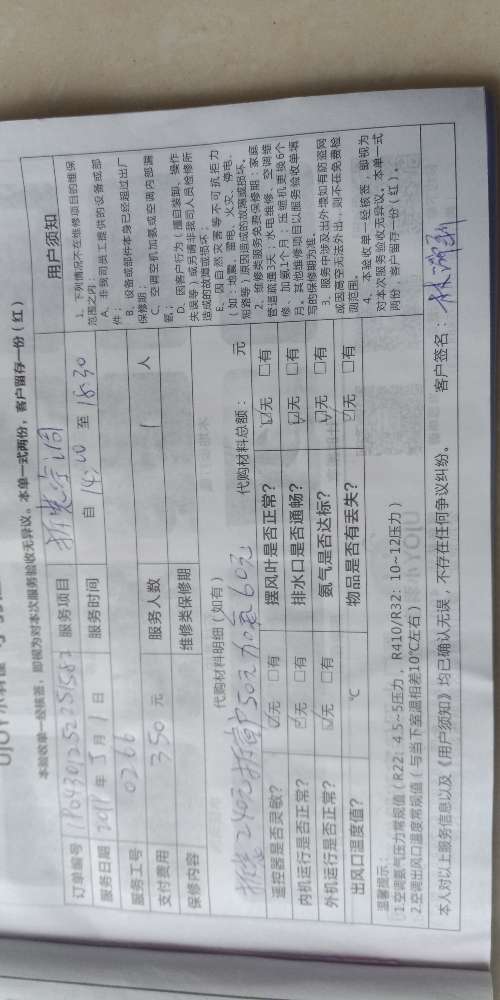 本验收单一经核签，即视为对本次服务验收无异议。本单一式两份，客户留存一份（红）
订单编号 服务项目 拆装空调
服务日期 年 5 月 1 日 服务时间 自 14:00 至 18:30
服务工号 0266
支付费用 350 元 服务人数 1 人
保修内容 维修类保修期
代购材料明细（如有） 代购材料总额： 元
拆装240元 50元 加氟60元
遥控器是否灵敏？ ☑无 □有 摆风叶是否正常？ ☑无 □有
内机运行是否正常？ ☑无 □有 排水口是否通畅？ ☑无 □有
外机运行是否正常？ ☑无 □有 氨气是否达标？ ☑无 □有
出风口温度值？ ℃ 物品是否有丢失？ ☑无 □有
用户须知
1、下列情况不在维修项目的维保
范围之内：
A、非我司员工提供的设备或部
件；
B、设备或部件本身已经超过出厂
保修期；
C、空调空机加氨或空调内部漏
氨；
D、因客户行为（擅自装卸、操作
失误等）或另请非我司人员检修所
造成的故障或损坏；
E、因自然灾害等不可抗拒力
（如：地震、雷电、火灾、停电、
短路等）原因造成的故障或损坏。
2、维修类服务免费保修期：家庭
管道疏通3天，水电维修、空调维
修、加氨1个月；压缩机更换6个
月。其他维修项目以服务验收单填
写的保修期为准。
3、服务中涉及出外墙如有防盗网
或因高空无法外出，则不在免费检
测范围。
4、本验收单一经核签，即视为
对本次服务验收无异议。本单一式
两份，客户留存一份（红）。
温馨提示：
1.空调氨气压力常规值（R22：4.5~5压力，R410/R32：10~12压力）
2.空调出风口温度常规值（与当下室温相差10℃左右）
本人对以上服务信息以及《用户须知》均已确认无误，不存在任何争议纠纷。 客户签名：